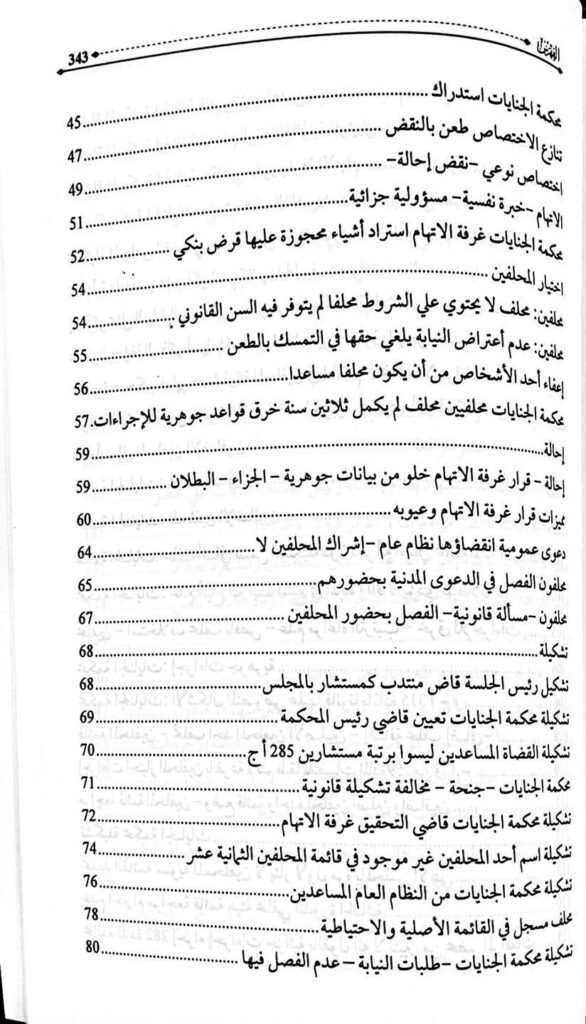 الفهرس
343
محكمة الجنايات استدراك................45
تنازع الاختصاص طعن بالنقض................47
اختصاص نوعي -نقض إحالة-................49
الاتهام -خبرة نفسية- مسؤولية جزائية................51
محكمة الجنايات غرفة الاتهام استراد أشياء محجوزة عليها قرض بنكي................52
اختيار المحلفين................54
محلفين: محلف لا يحتوي علي الشروط محلفا لم يتوفر فيه السن القانوني................54
محلفين: عدم أعتراض النيابة يلغي حقها في التمسك بالطعن................55
إعفاء أحد الأشخاص من أن يكون محلفا مساعدا................56
محكمة الجنايات محلفيين محلف لم يكمل ثلاثين سنة خرق قواعد جوهرية للإجراءات.57
إحالة................59
إحالة - قرار غرفة الاتهام خلو من بيانات جوهرية - الجزاء - البطلان................59
مميزات قرار غرفة الاتهام وعيوبه................60
دعوى عمومية انقضاؤها نظام عام -إشراك المحلفين لا................64
محلفون الفصل في الدعوى المدنية بحضورهم................65
محلفون -مسألة قانونية- الفصل بحضور المحلفين................67
تشكيلة................68
تشكيل رئيس الجلسة قاض منتدب كمستشار بالمجلس................68
تشكيلة محكمة الجنايات تعيين قاضي رئيس المحكمة................69
تشكيلة القضاة المساعدين ليسوا برتبة مستشارين 285 أ ج................70
محكمة الجنايات -جنحة - مخالفة تشكيلة قانونية................71
تشكيلة محكمة الجنايات قاضي التحقيق غرفة الاتهام................72
تشكيلة اسم أحد المحلفين غير موجود في قائمة المحلفين الثمانية عشر................74
تشكيلة محكمة الجنايات من النظام العام المساعدين................76
محلف مسجل في القائمة الأصلية والاحتياطية................78
تشكيلة محكمة الجنايات -طلبات النيابة - عدم الفصل فيها................80